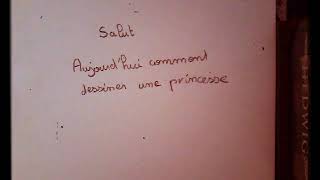 Salut
Aujourd'hui comment
dessiner une princesse
HEDWIG